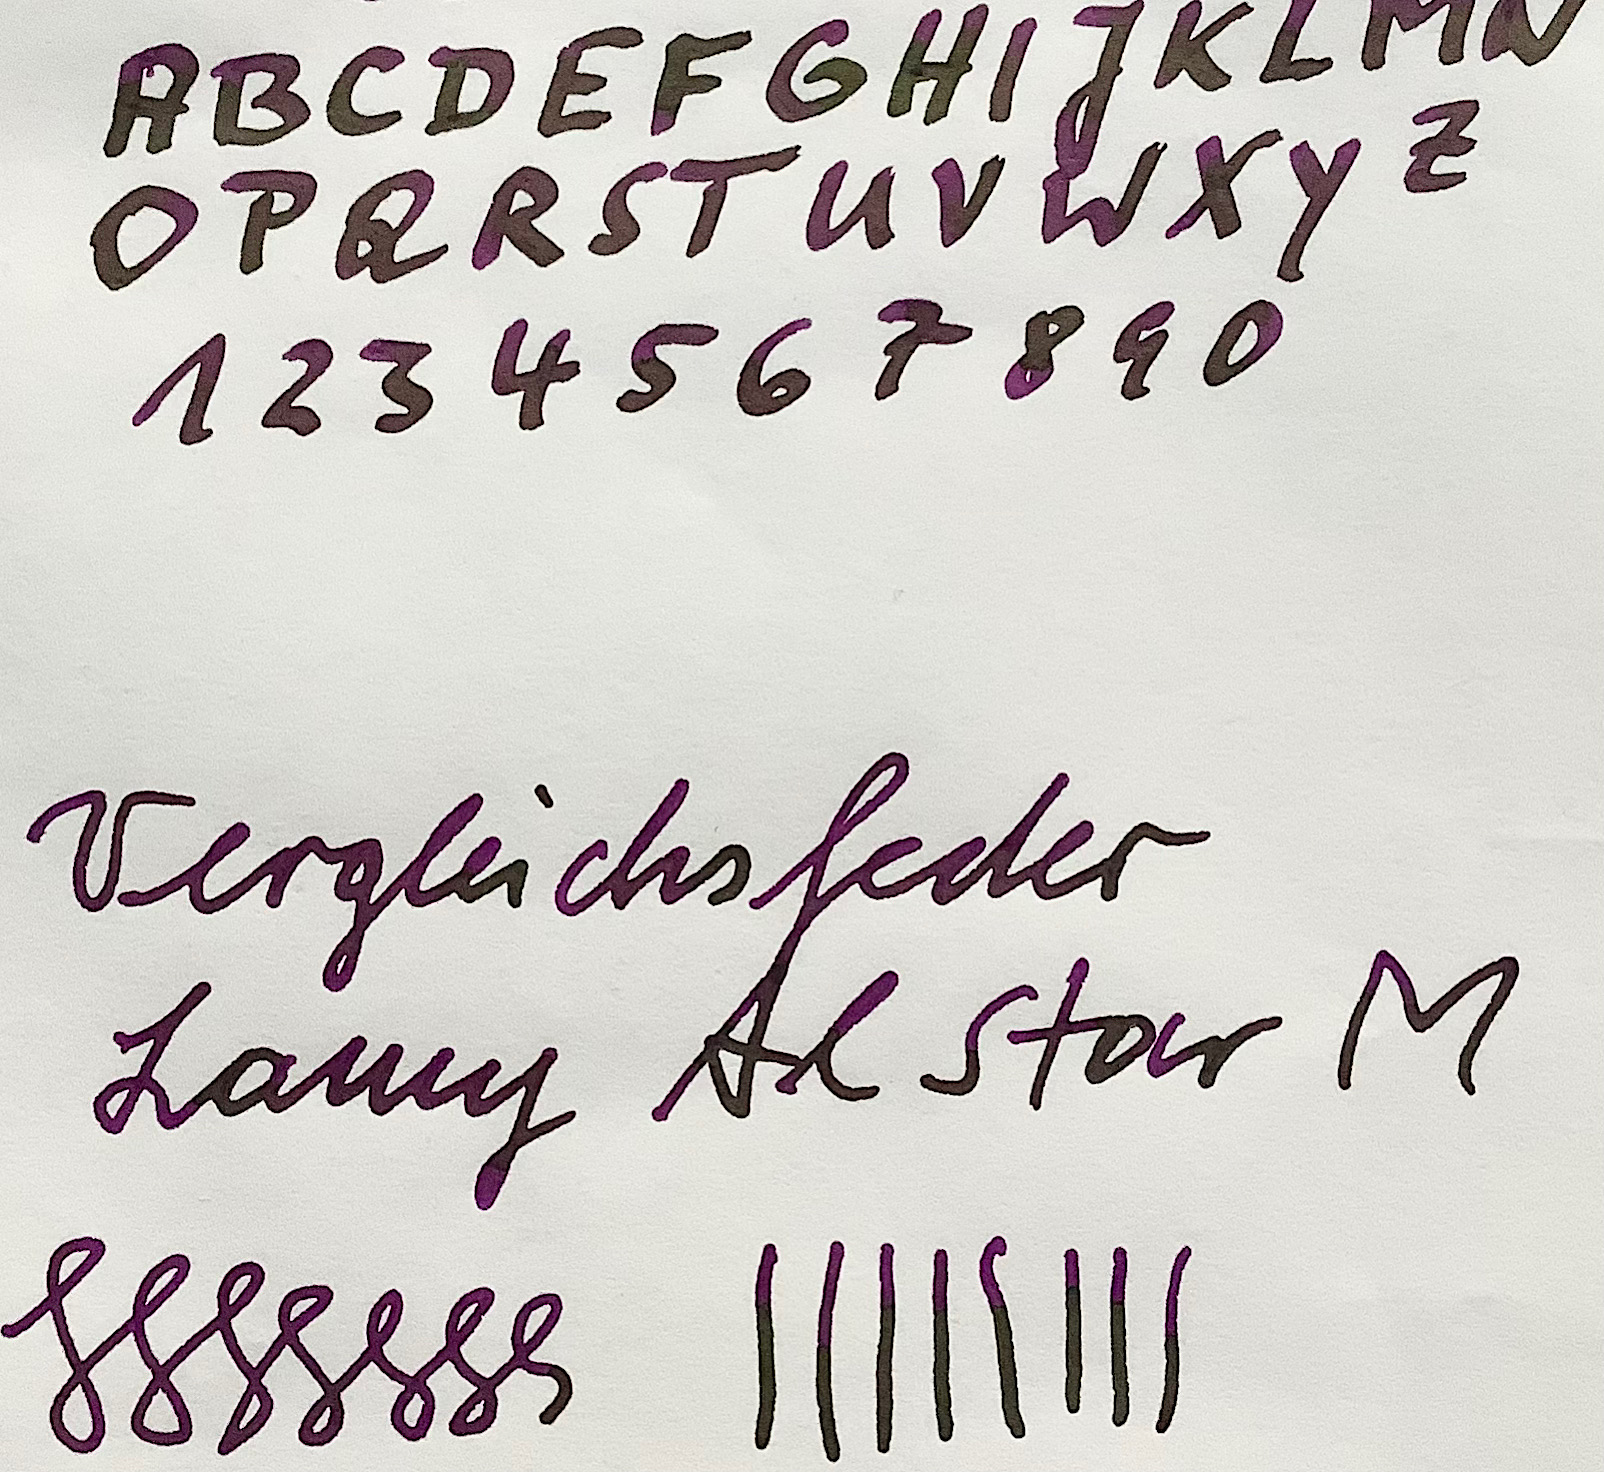 ABCDEFGHIJKLMN
OPQRSTUVWXYZ
1234567890
Vergleichsfeder
Lamy Al Star M